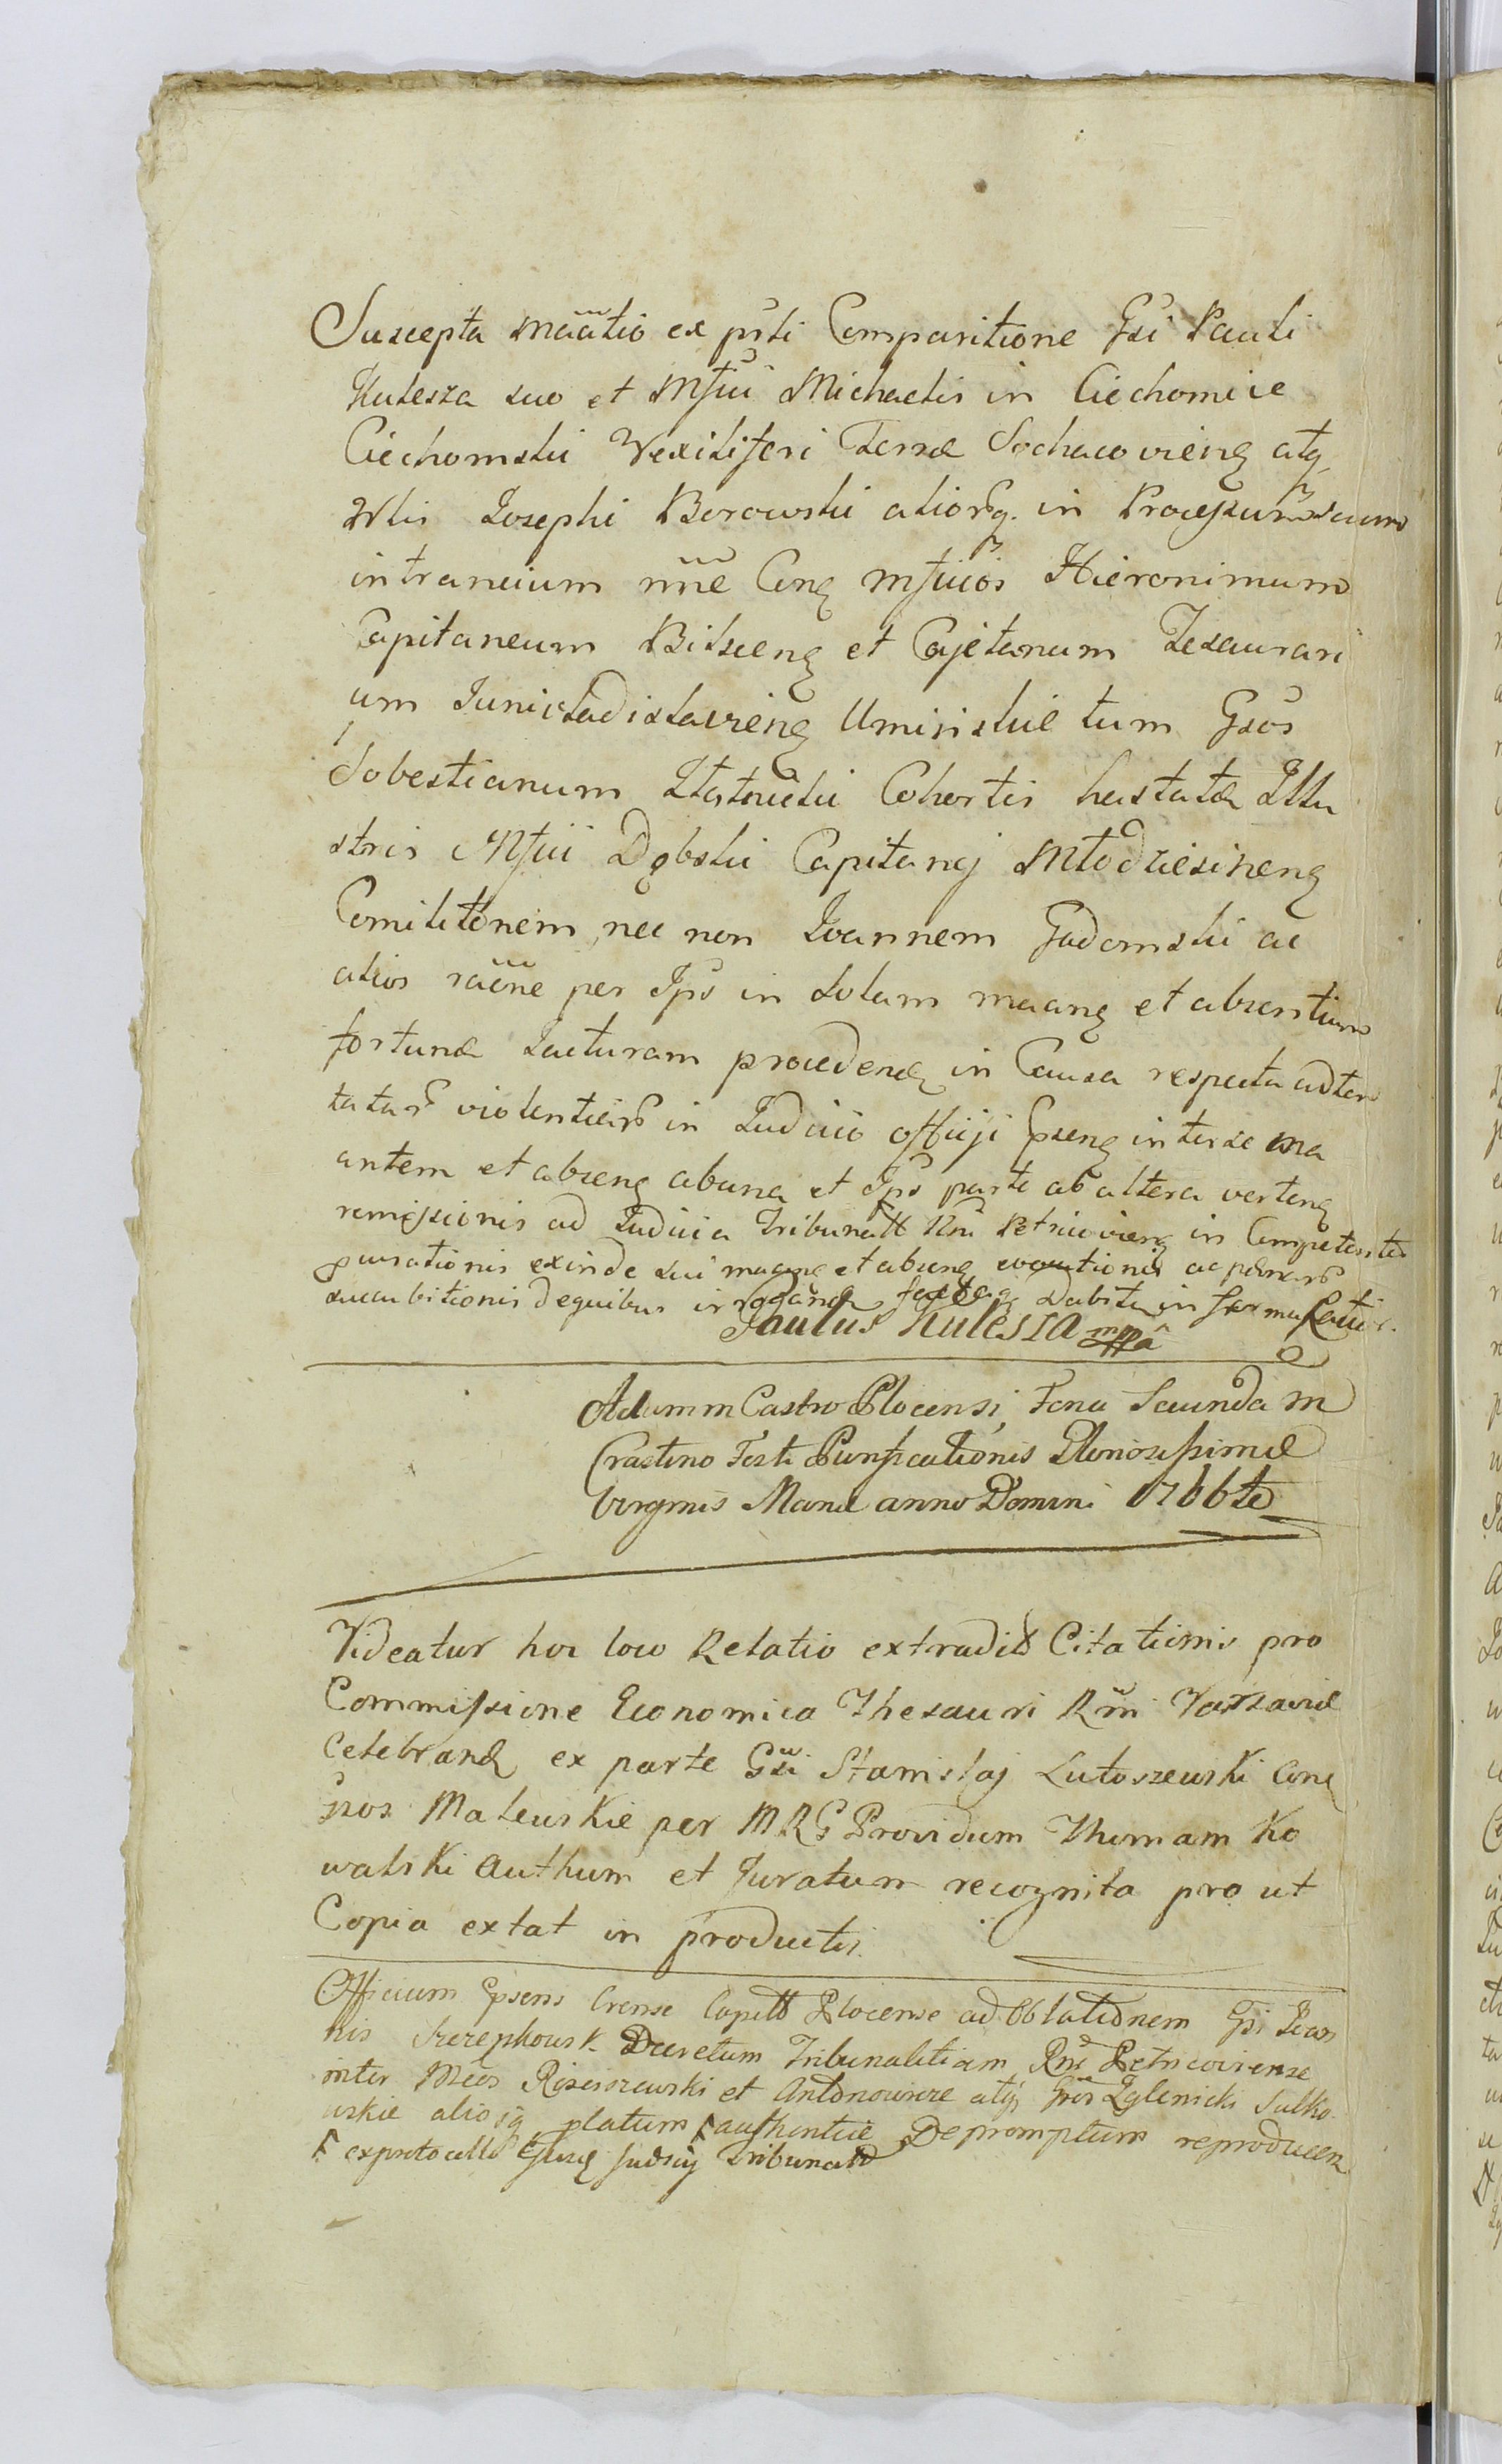 Suscepta mãatio ex prti Comparitione Gsi Pauli
Kulesza suo et Mfici Michaelis in Ciechomice
Ciechomski Vexiliferi Terræ Sochacovienq atq
Wlis Josephi Borowski aliorq. in Processum suum
intrancium nne Conq Mficos Hieronimum
Capitaneum Bilscenq et Cajetanum Tesaurari
um Juniwladislavienq Uminskie tum Gsos
Sobestianum Cohortis hastatæ Illu
stris Mfici Dąbski Capitanej Młodziesinenq
Comilitonem, nec non Joannem Gadomski ac
alios raöne per Ips in solam maanq et absentium
fortunæ Jacturam procedenq in Causa respectu adten
tatar violentiar in Judicio officij Gsenq inter se ma
antem et absenq ab una et Ips parte ab altera vertenq
remissionis ad Judicia Tribunall Rni Petricovienq in Competenter
pursationis exinde sui maanq et absenq evocutionis ac pænar
succubitionis de quibus irrogandæ Dabitur in forma
Paulus Kulesza mppâ
Actum in Castro Plocensi Feria Secunda in
Crastino Festi Purificationis Gloriosissimæ
Virginis Mariæ anno Domini 1766to
Videatur hoc loco Relatio extraditæ Citationis pro
Commissione Economica Thesauri Rni Varsaviæ
Celebrandæ ex parte Gsi Stanislaj Lutoszewski Conq
Gsos Maleuskie per MRG Providum Thomam Ko
walski Authum et Juratum recognita pro ut
Copia extat in productis.
Officium Gsens Crense Capitl Plocense ad Oblationem Gsi Joan
nis Szczepkowsk Decretum Tribunalitiam Rni Petricoviense
inter Mcos Rosciszewski et Antonowicze atq Gsos Zglenicki Sulko
wskie aliosq platum ꓝ authentice Depromptum reproducen
ꓝ ex protocullo Ejusq Judicij Tribunall